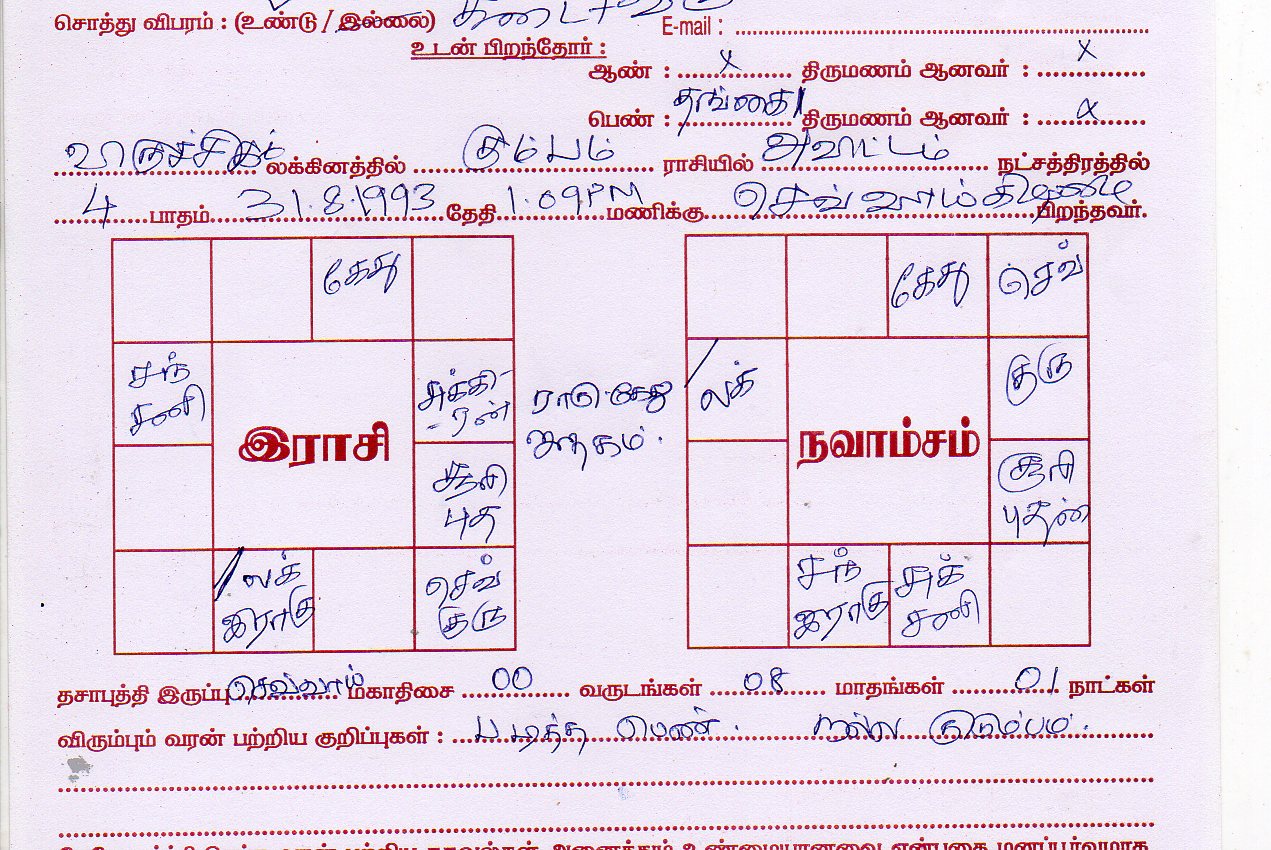 சொத்து விபரம் : (உண்டு / இல்லை) E-mail :
உடன் பிறந்தோர் :
ஆண் : x திருமணம் ஆனவர் : x
பெண் : தங்கை 1 திருமணம் ஆனவர் : x
விருச்சிகம் லக்கினத்தில் கும்பம் ராசியில் அவிட்டம் நட்சத்திரத்தில்
4 பாதம் 31.8.1993 தேதி 1.09PM மணிக்கு செவ்வாய்கிழமை பிறந்தவர்.
கேது
கேது செவ்
சந் சனி
சுக்கிரன்
ராகு கேது
ஜாதகம்.
லக்
குரு
இராசி
நவாம்சம்
சூரி புத
சூரி புதன்
லக் இராகு
செவ் குரு
சந் இராகு
சுக் சனி
தசாபுத்தி இருப்பு செவ்வாய் மகாதிசை 00 வருடங்கள் 08 மாதங்கள் 01 நாட்கள்
விரும்பும் வரன் பற்றிய குறிப்புகள் : படித்த பெண். நல்ல குடும்பம்.